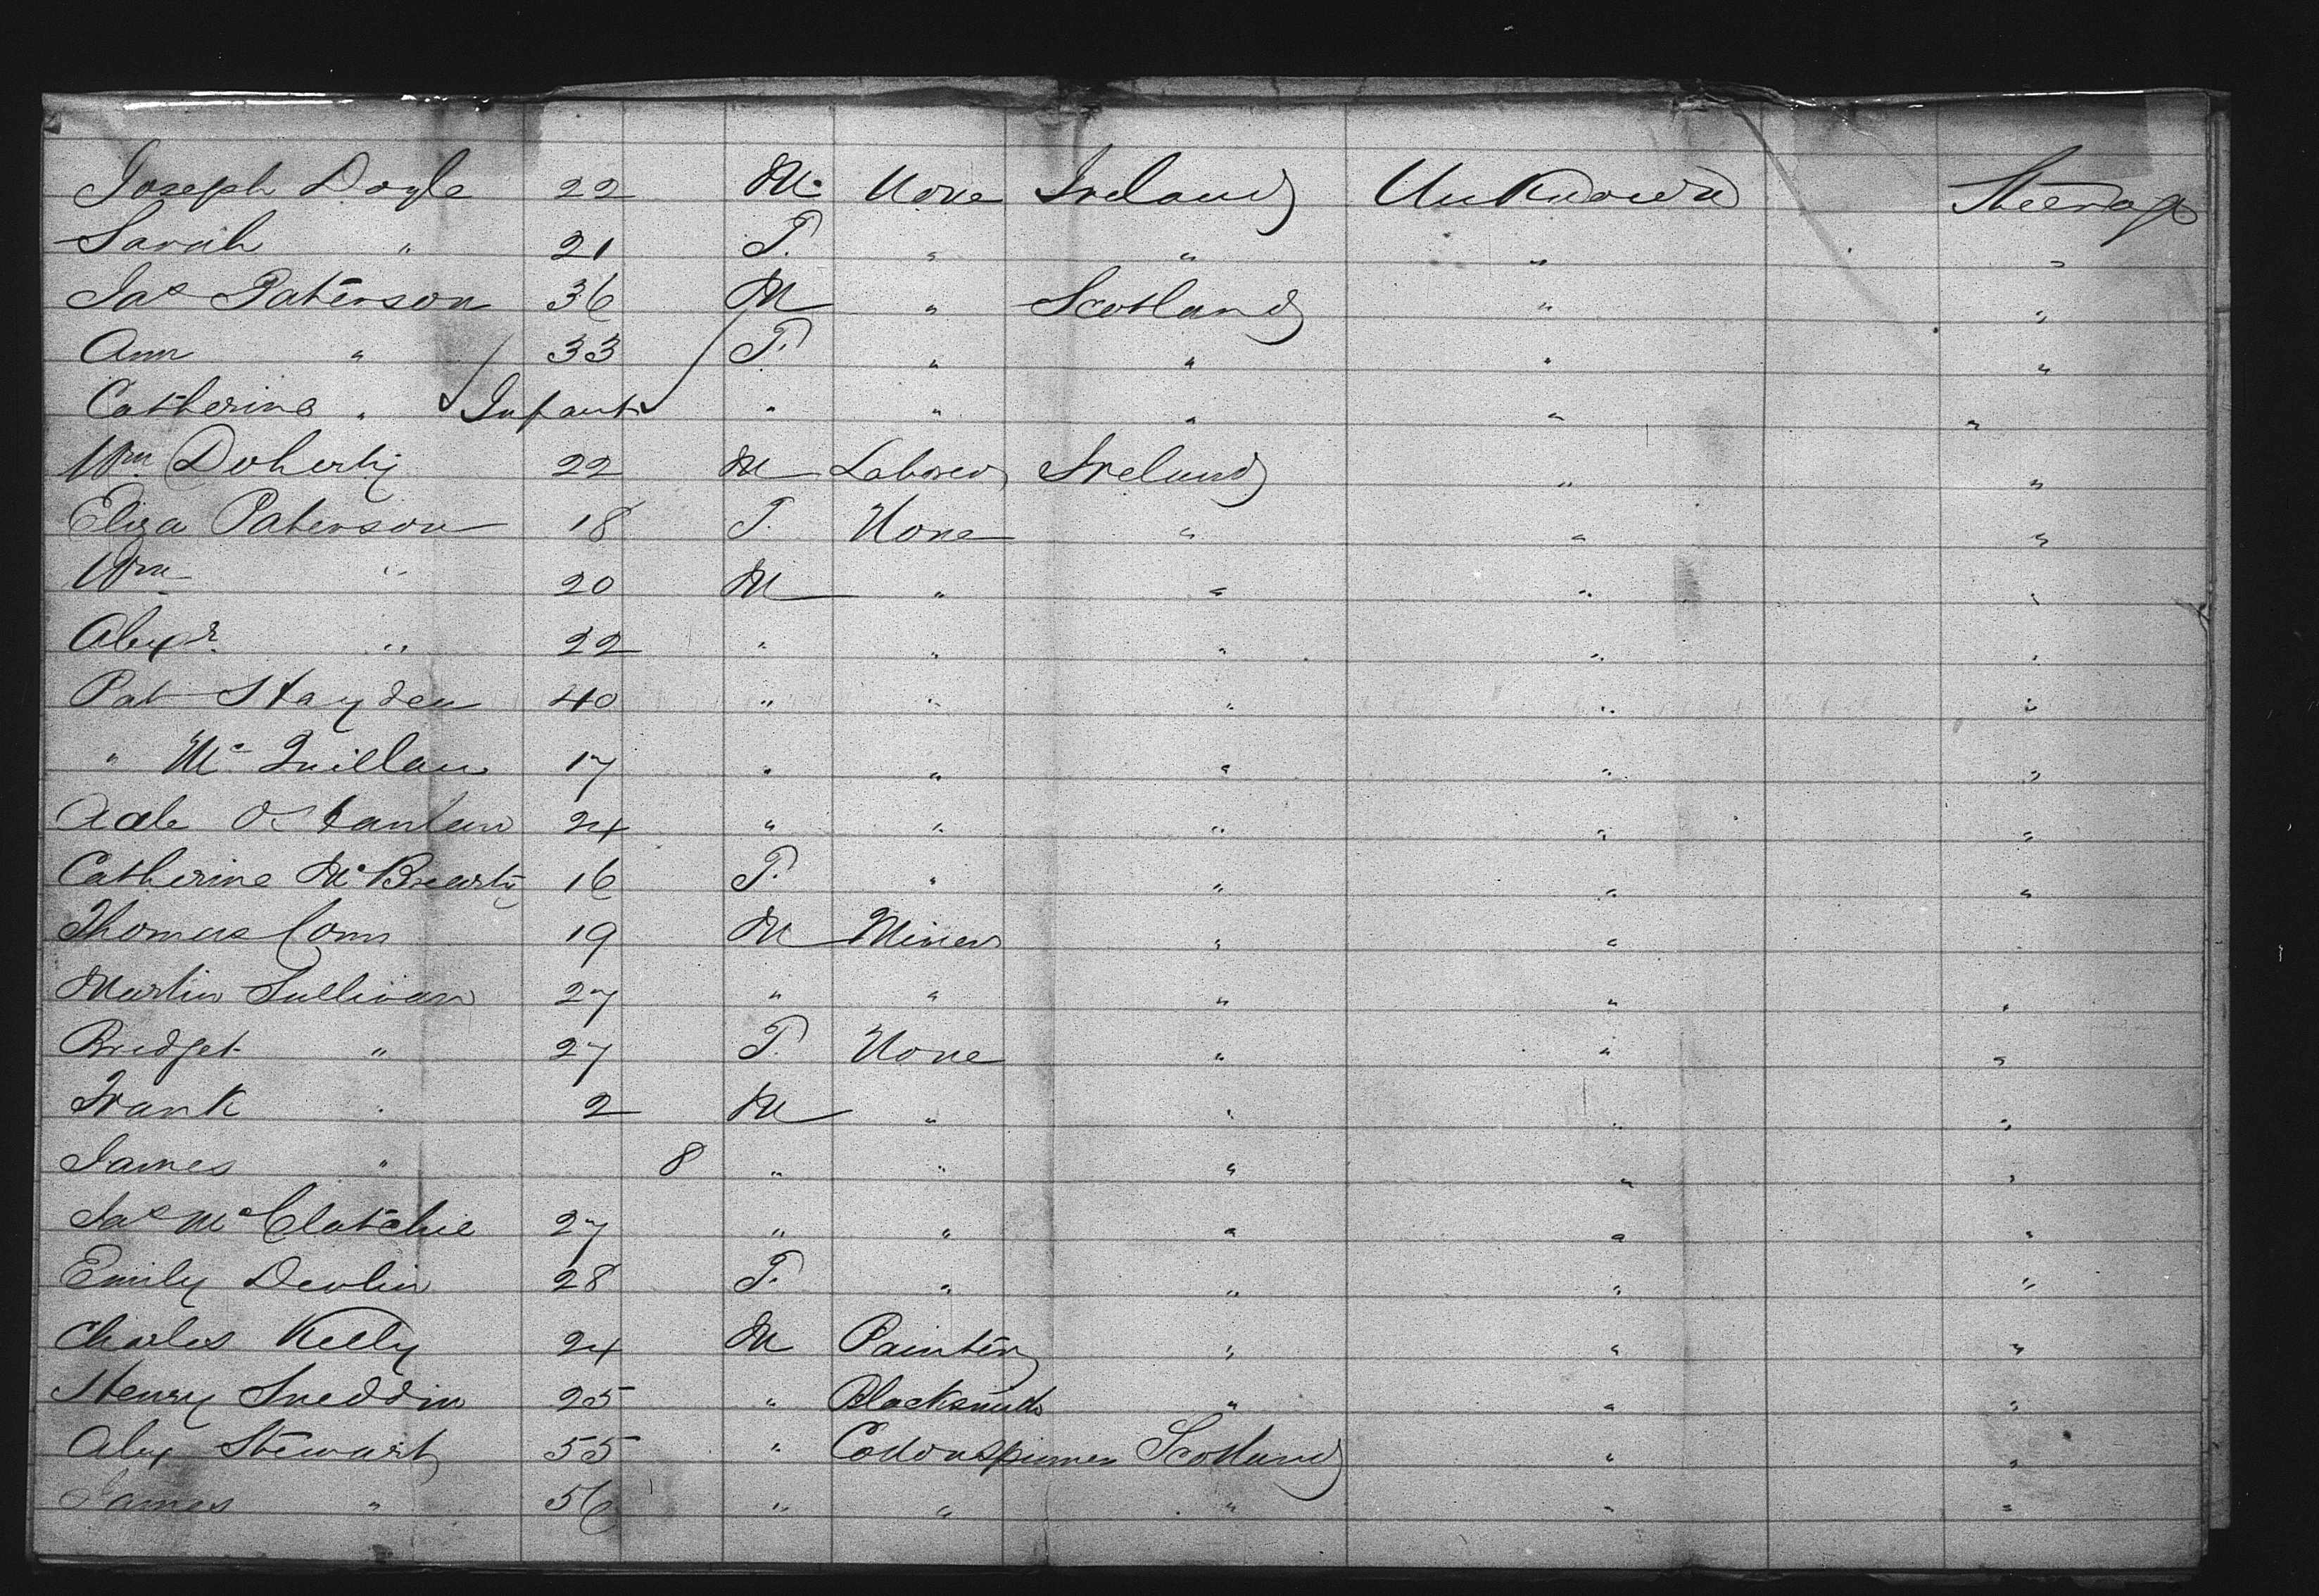 Joseph Doyle 22 M. None Ireland Unknown Steerage
Sarah " 21 F. " " " "
Jas Paterson 36 M " Scotland " "
Ann " 33 F. " " " "
Catherine " Infant " " " " "
Wm Doherty 22 M Laborer Ireland " "
Eliza Paterson 18 F. None " " "
Wm " 20 M " " " "
Alexr. " 22 " " " " "
Pat Hayden 40 " " " " "
" Mc Quillan 17 " " " " "
O'Hanlan 24 " " " " "
Catherine McBrearty 16 F. " " " "
Thomas Conn 19 M Miner " "
Martin Sullivan 27 " " " " "
Bridget " 27 F. None " " "
Frank " 2 M " " " "
James " 8 " " " " "
Jas McClatchie 27 " " " " "
Emily Devlin 28 F. " " " "
Charles Kelly 24 M Painter " " "
Henry Sneddin 25 " Blacksmith " " "
Alex Stewart 55 " Cottonspinner Scotland " "
James " 56 " " " " "